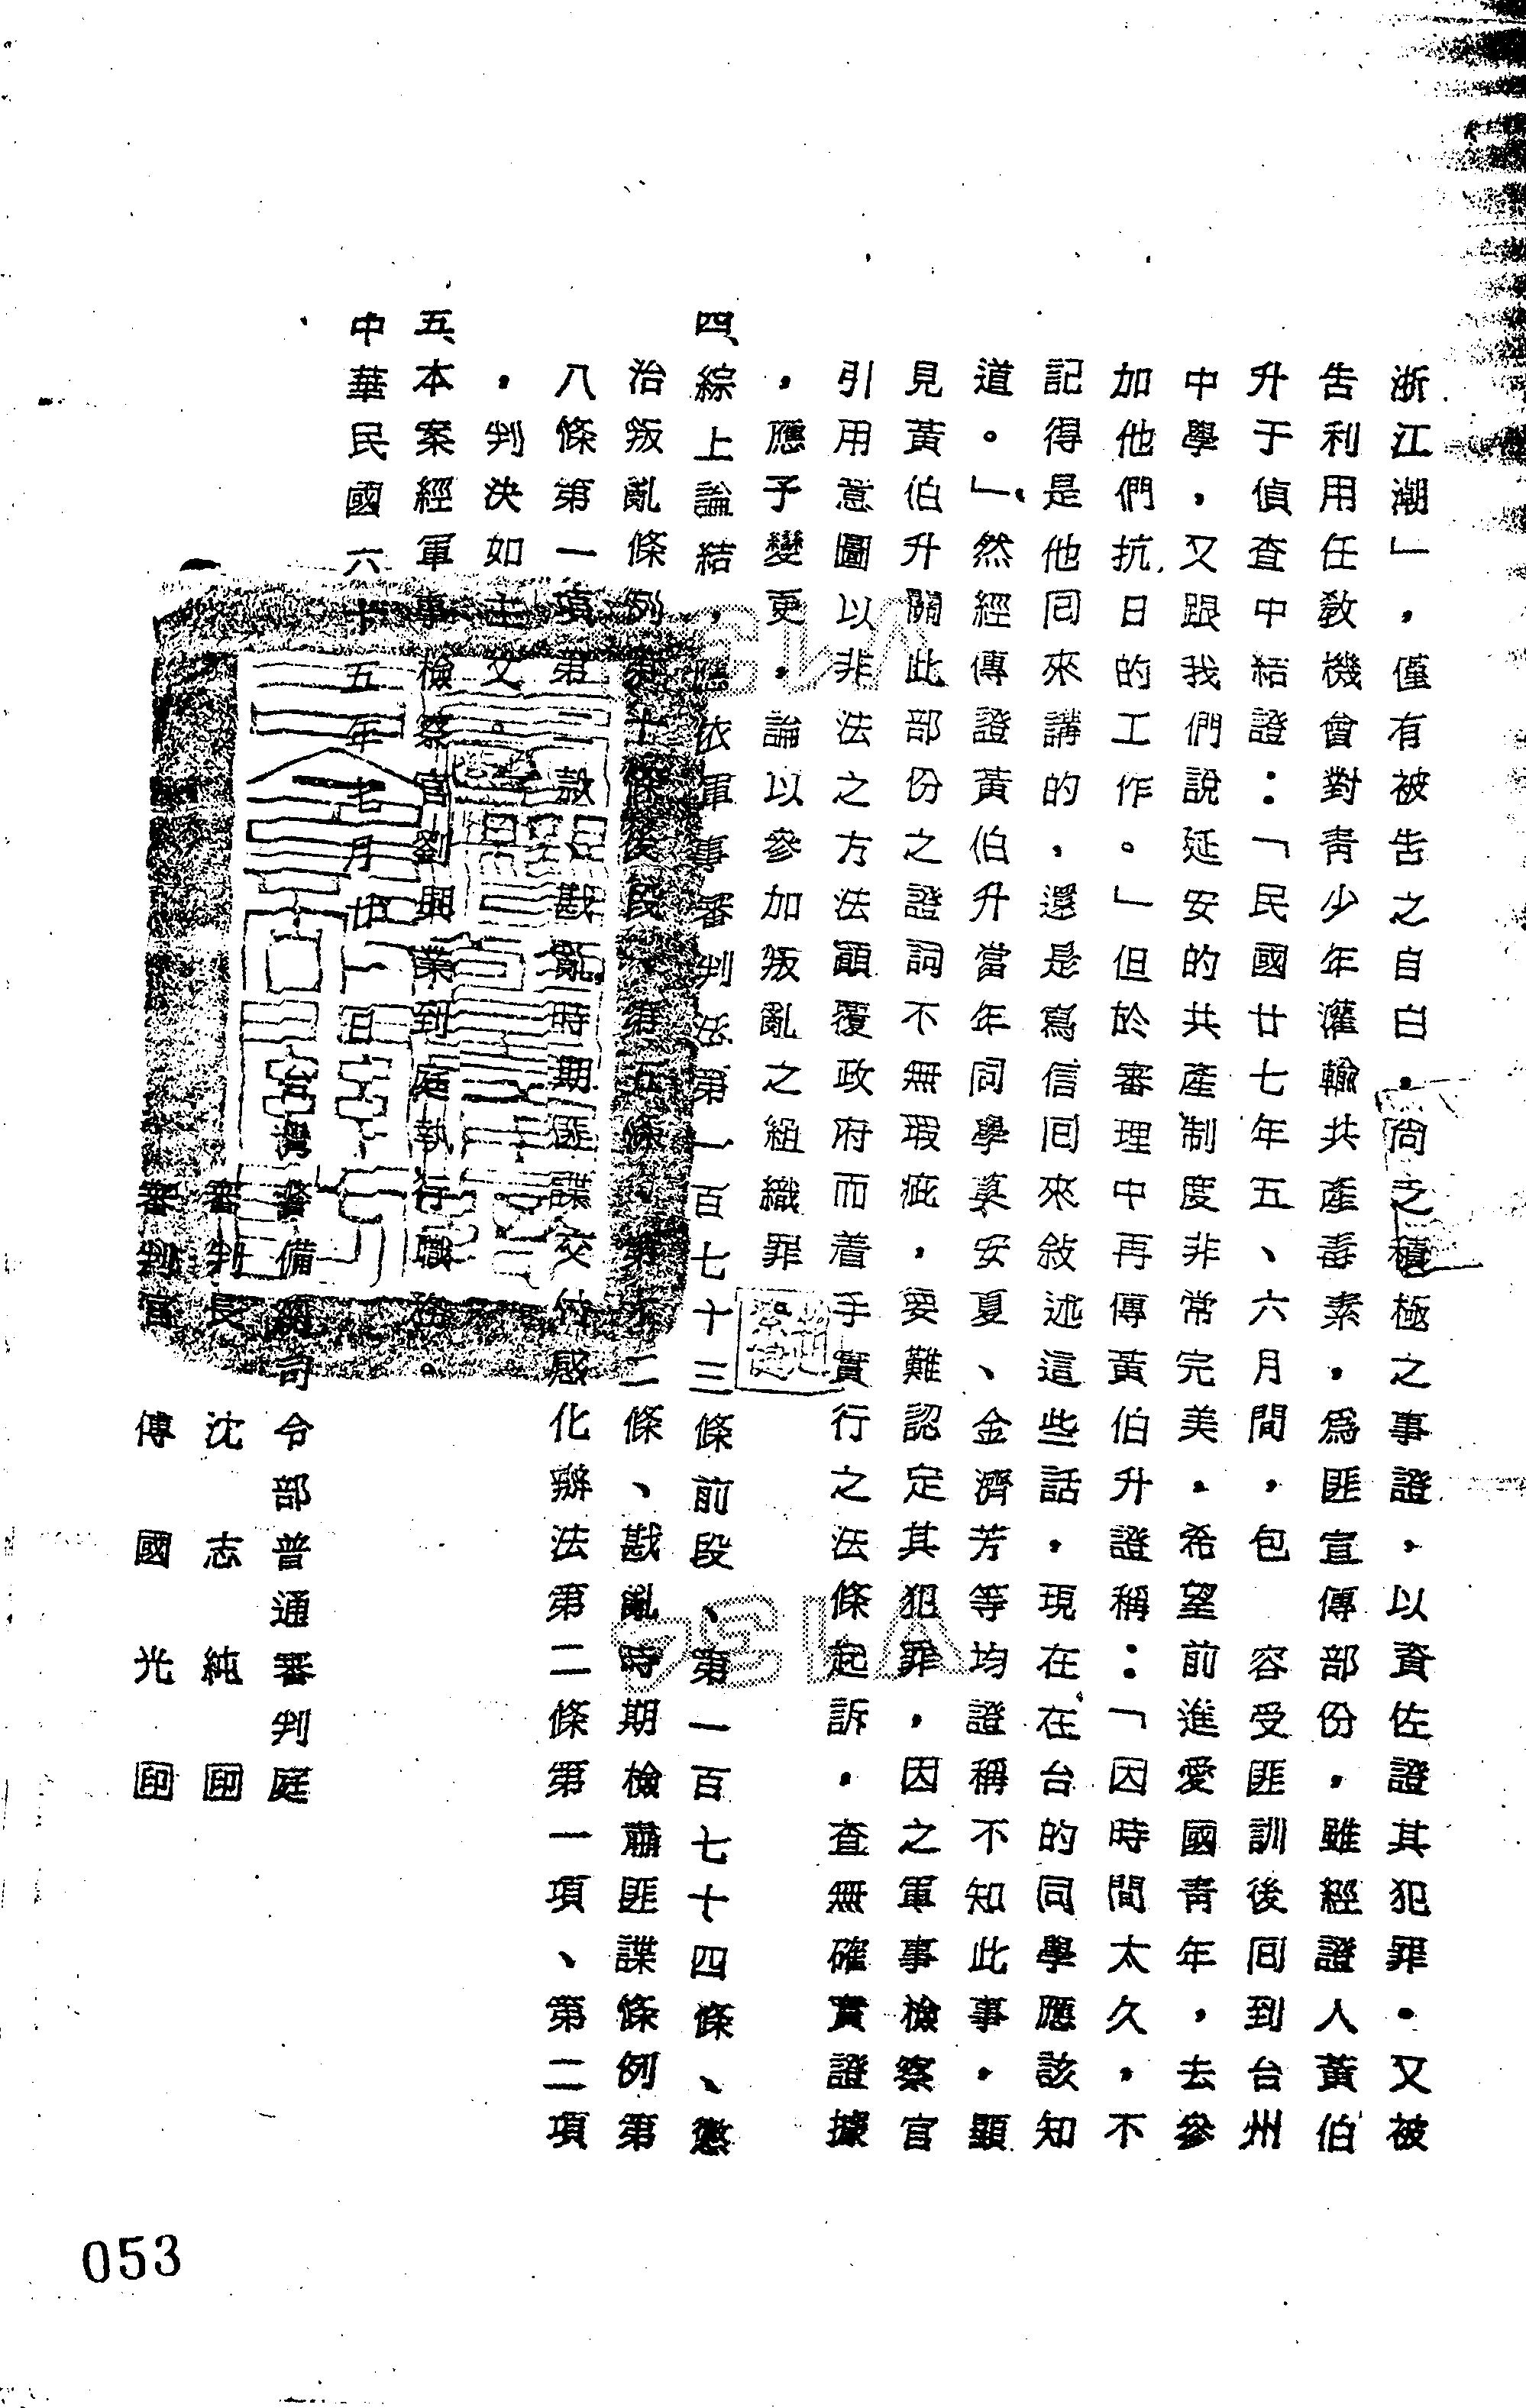 浙江潮」，僅有被告之自白，尚乏積極之事證，以資佐證其犯罪。又被
告利用任教機會對青少年灌輸共產毒素，為匪宣傳部份，雖經證人黃伯
升于偵查中結證：「民國廿七年五、六月間，包容受匪訓後回到台州
中學，又跟我們說延安的共產制度非常完美，希望前進愛國青年，去參
加他們抗日的工作。」但於審理中再傳黃伯升證稱：「因時間太久，不
記得是他回來講的，還是寫信回來敘述這些話，現在在台的同學應該知
道。」然經傳證黃伯升當年同學莫安夏、金濟芳等均證稱不知此事，顯
見黃伯升關此部份之證詞不無瑕疵，要難認定其犯罪，因之軍事檢察官
引用意圖以非法之方法顛覆政府而着手實行之法條起訴，查無確實證據
，應予變更，論以參加叛亂之組織罪
四、綜上論結，應依軍事審判法第一百七十三條前段、第一百七十四條、懲
治叛亂條例第十條後段、第五條、第十二條、戡亂時期檢肅匪諜條例第
八條第一項第二款、戡亂時期匪諜交付感化辦法第二條第一項、第二項
，判決如主文。
五、本案經軍事檢察官劉興業到庭執行職務。
中華民國六十五年七月廿一日
台灣警備總司令部普通審判庭
審判長 沈志純 印
審判官 傅國光 印
053